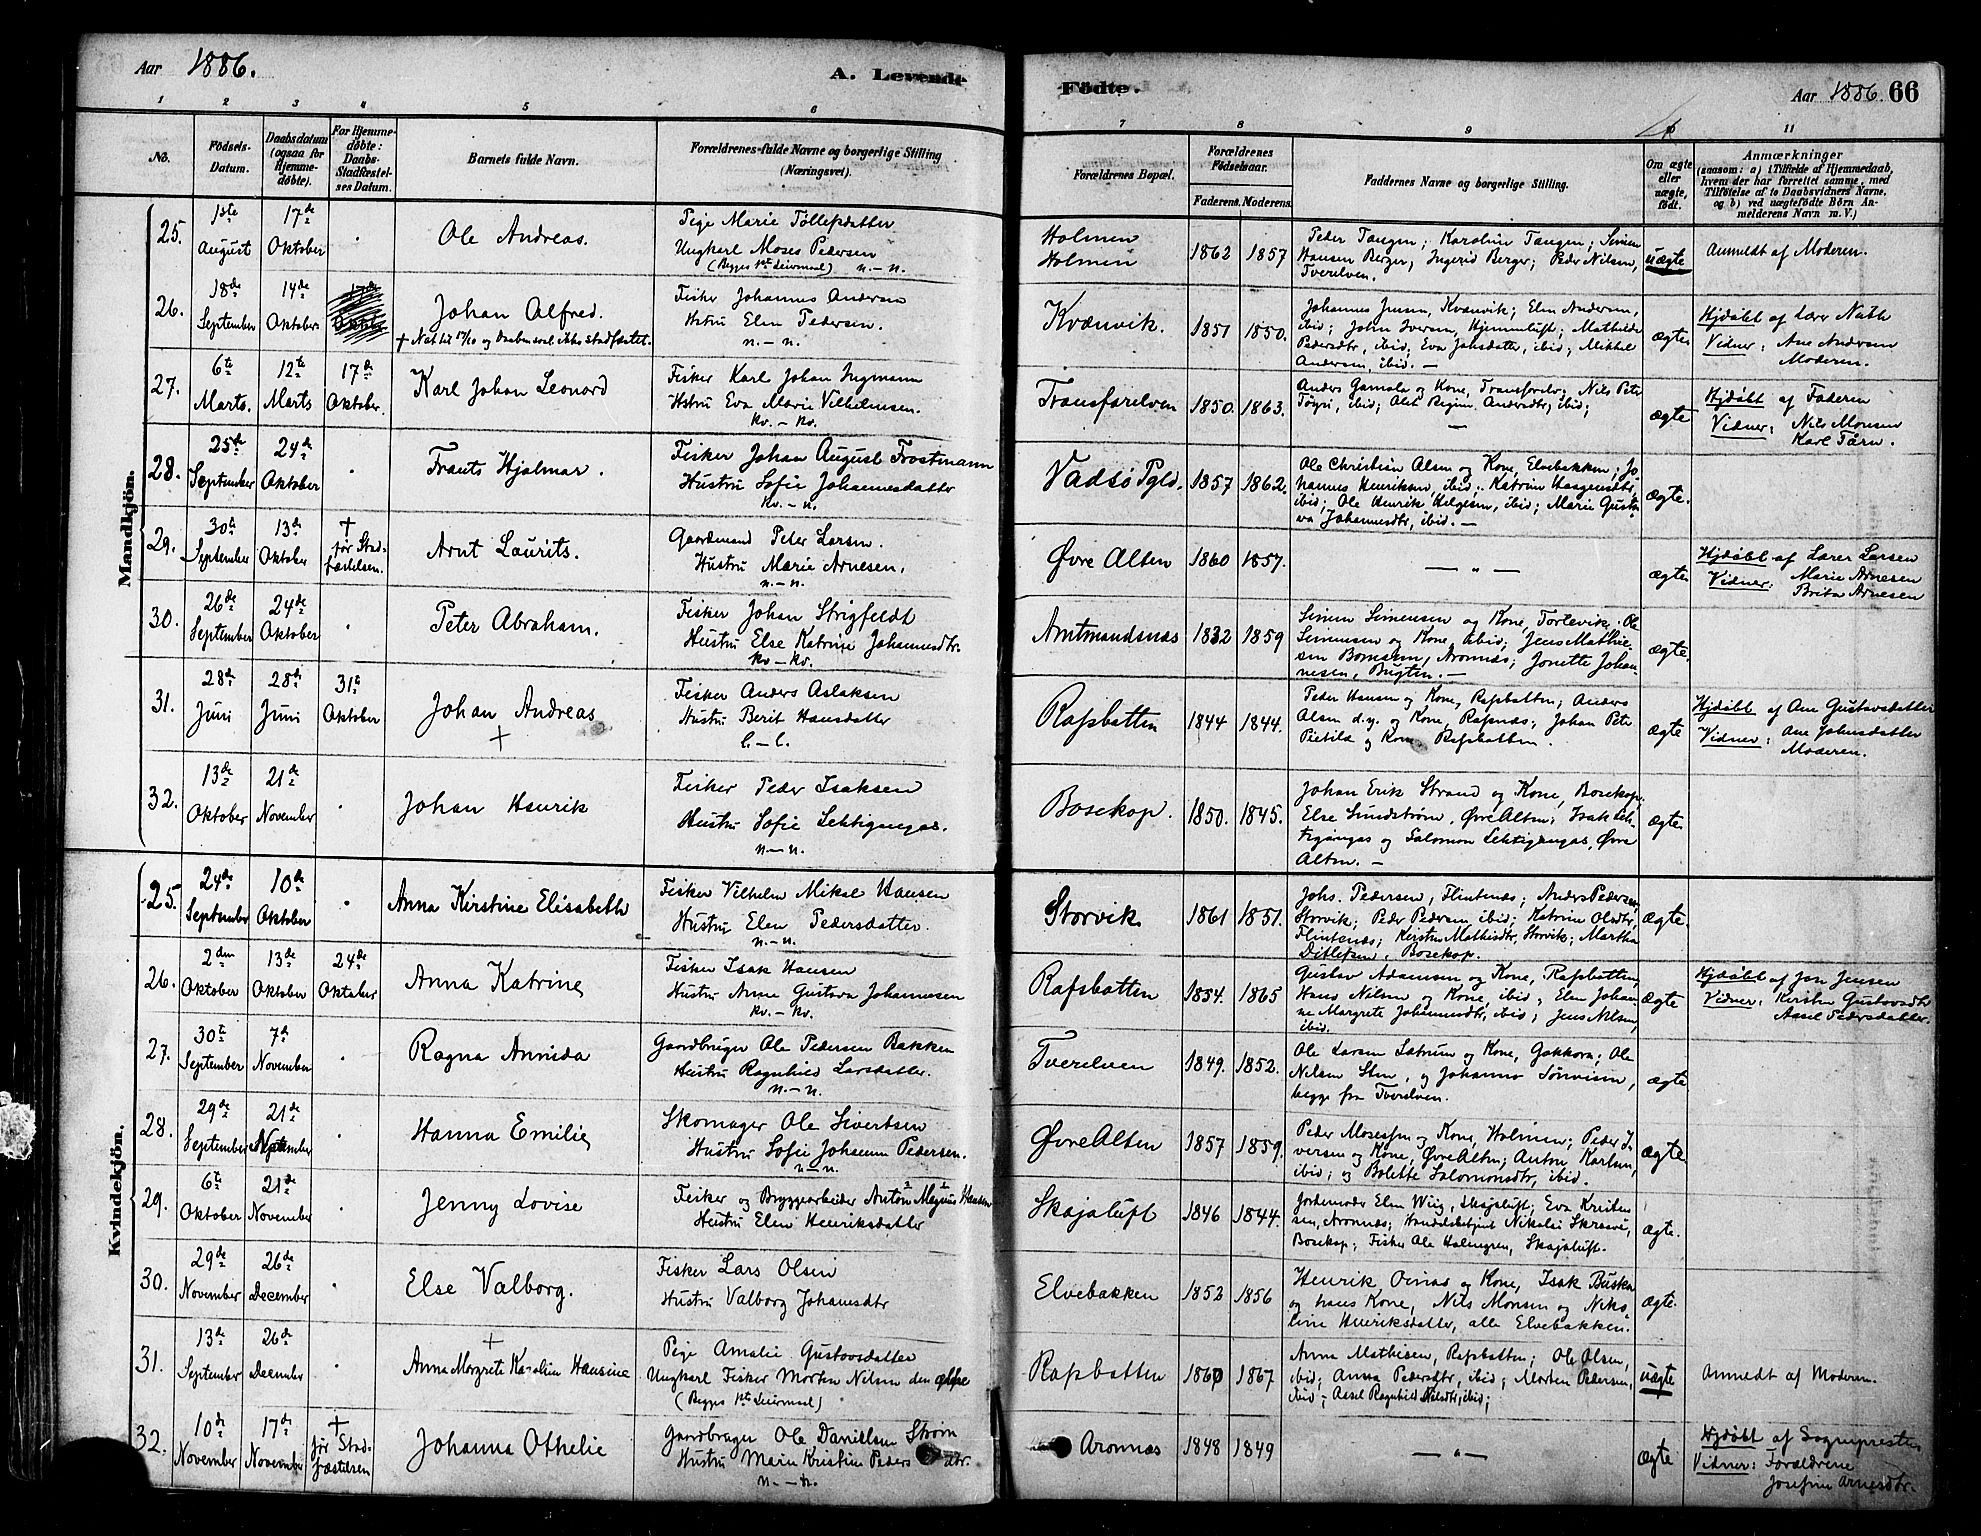 Aar 1886.
A. Levende
Födte.
Aar 1886. 66
1 2 3 4 5 6 7 8 9 11
No.
Födsels-Datum.
Daabsdatum (ogsaa for Hjemme-döbte).
For Hjemme-döbte: Daabs-Stadfæstelses Datum.
Barnets fulde Navn.
Forældrenes fulde Navne og borgerlige Stilling (Næringsvei).
Forældrenes Bopæl.
Forældrenes Födselsaar.
Faderens. Moderens.
Faddernes Navne og borgerlige Stilling.
Om ægte eller uægte, födt.
Anmærkninger
(saasom: a) i Tilfælde af Hjemmedaab,
hvem der har forrettet samme, med
Tilföielse af to Daabsvidners Navne,
og b) ved uægtefödte Börn An-
melderens Navn m. V.)
Mandkjön.
25. 1ste August 17de Oktober Ole Andreas.
Pige Marie Tøllefsdatter
Ungkarl Moses Pedersen
(Begges 1st Leiermaal) n. - n.
Holmen
Holmen
1862 1857
Peder Tangen; Karoline Tangen; Simen
Hansen Berger; Ingerid Berger; Peder Nilsen,
Tverelven.
uægte
Anmeldt af Moderen.
26. 18de September 14de Oktober. Johan Alfred.
Fisker Johannes Andersen
Hstru Elen Pedersen.
n. - n.
Kvænvik. 1851 1850.
Johannes Jensen, Kvænvik; Elen Andersen,
ibid; John Iversen, Hjemmeluft; Mathilde
Pedersdtr, ibid; Eva Johsdatter, ibid; Mikkel
Andersen, ibid. -
ægte
Hjdøbt af Lærer Nath
Vidner: Ane Andersen
Moderen.
27. 6te Marts. 12te Marts 17de Oktober. Karl Johan Leonard
Fisker Karl Johan Ingmann
Hstru Eva Marie Vilhelmsen.
kv. - kv.
Transfarelven 1850. 1863.
ægte
Hjdøbt af Faderen
Vidner: Nils Monsen
28. 25de September 24de Oktober Frants Hjalmar.
Fisker Johan August Frostmann
Hustru Sofie Johannesdatter
kv. - n.
Vadsø Pgld. 1857 1862.
Ole Christian Olsen og Kone, Elvebakken; Jo
hannes Henriksen, ibid; Katrine
ibid; Ole Henrik Helgesen, ibid; Marie Gusta
va Johannesdtr, ibid. -
ægte.
29. 30te September 13de Oktober † før Stad-fæstelsen. Arnt Laurits.
Gaardmand Peter Larsen.
Hustru Marie Arnesen,
n. - n.
Øvre Alten 1860 1857. — " —
ægte
Hjdøbt af Lærer Larsen
Vidner: Marie Arnesen
Brita Arnesen
30. 26de September 24de Oktober Peter Abraham.
Fisker Johan Strigfeldt
Hustru Else Katrine Johannesdtr.
kv. - kv.
Amtmandsnæs 1832 1859
Simen Simensen og Kone, Tørlevik; Ole
Simensen og Kone, ibid; Jens Mathie-
sen Aronnæs; Jonette Johan-
nesen, Bugten. -
ægte.
31. 28de Juni 28de Juni 31te Oktober Johan Andreas
†
Fisker Anders Aslaksen
Hustru Berit Hansdatter
l. - l.
Rafsbatten 1844 1844.
Peder Hansen og Kone, Rafsbatten; Anders
Olsen d.y. og Kone, Rafsnæs; Johan Peter
Pietilä og Kone Rafsbatten.
ægte
Hjdøbt af Ane Gustavsdatter
Vidner: Ane Johnsdatter
Moderen.
32. 13de Oktober 21de November Johan Henrik
Fisker Peder Isaksen
Hustru Sofie Lehtigangas.
n. - n.
Bosekop. 1850. 1845.
Johan Erik Strand og Kone, Bosekop;
Else Sundstrøm, Øvre Alten; Isak Leh-
tigangas og Salomon Lehtigangas, Øvre
Alten. -
ægte.
Kvindekjön.
25. 24de September 10de Oktober Anna Kirstine Elisabeth
Fisker Vilhelm Mikal Hansen
Hustru Elen Pedersdatter.
n. - n.
Storvik 1861 1851.
Johs. Pedersen, Flintenæs; Anders Pedersen
Storvik; Peder Pedersen ibid; Katrine Olsdtr,
Flintenæs; Kirsten Mathisdtr, Storvik; Martha
Ditlefsen, Bosekop.
ægte.
26. 2den Oktober 13de Oktober 24de Oktober Anna Katrine
Fisker Isak Hansen
Hustru Anne Gustava Johannesen
kv. - kv.
Rafsbatten 1854. 1865
Gustav Adamsen og Kone, Rafsbatten,
Hans Nilsen og Kone, ibid; Elen Johan
ne Margrete Johannesdtr, ibid; Jens Nilsen,
ibid.
ægte
Hjdøbt af Jon Jensen
Vidner: Kirsten Gustavsdtr
Aasel Pedersdatter.
27. 30te September 7de November Ragna Annida
Gaardbruger Ole Pedersen Bakken
Hustru Ragnhild Larsdatter.
n. - n.
Tverelven 1849. 1852.
Ole Larsen og Kone, Gakkora; Ole
Nilsen Sten, og Johannes
begge fra Tverelven.
ægte
28. 29de September 21de November Hanna Emilie
Skomager Ole Sivertsen
Hustru Sofie Johanne Pedersen.
n. - n.
Øvre Alten 1857 1859.
Peder Mosesen og Kone, Holmen; Peder I-
versen og Kone, Øvre Alten; Anton Karlsen,
ibid; og Bolette Salomonsdtr, ibid.
ægte.
29. 6te Oktober 21de November Jenny Lovise
Fisker og Bryggearbeider Anton Magnus Hansen
Hustru Elen Henriksdatter
Skajaluft 1846 1844.
Jordemoder Elen Wiig, Skajaluft; Eva Kristen
sen, Aronnæs; Handelsbetjent Nikolai
Bosekop; Fisker Ole Holmgren, Skajaluft.
ægte.
30. 29de November 26de December Else Valborg.
Fisker Lars Olsen
Hustru Valborg Johansdtr
Elvebakken 1852 1856
Henrik Oinas og Kone, Isak Buska
og hans Kone, Nils Monsen og Niko-
line Henriksdatter, alle Elvebakken.
ægte.
31. 13de September 26de December †
Anna Margrete Karoline Hansine
Pige Amalie Gustavsdatter
Ungkarl Fisker Morten Nilsen den
(Begges 1ste Leiermaal)
Rafsbatten 1860 1867
Anna Mathisen, Rafsbatten; Ole Olsen,
ibid; Anna Pedersdtr, ibid; Morten Pedersen,
ibid - Aasel Ragnhild Nilsdtr, ibid;
uægte
Anmeldt af Moderen.
32. 10de November 17de November † før Stad-fæstelsen Johanna Othelie
Gaardbruger Ole Danielsen Strøm
Hustru Marie Kristine Peders dtr.
n. - n.
Aronnæs 1848 1849 — " —
ægte
Hjdøbt af Sognepresten
Vidner: Forældrene
Josefine Arnesdtr.